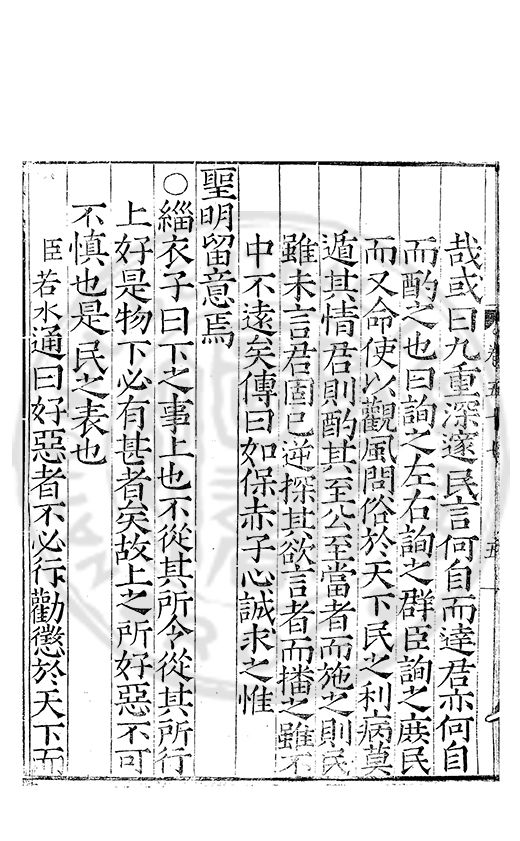 哉或曰九重深邃民言何自而達君亦何自
而酌之也曰詢之左右詢之群臣詢之庶民
而又命使以觀風問俗於天下民之利病莫
遁其情君則酌其至公至當者而施之則民
雖未言君固已逆探其欲言者而播之雖不
中不遠矣傳曰如保赤子心誠求之惟
聖明留意焉
○緇衣子曰下之事上也不從其所令從其所行
上好是物下必有甚者矣故上之所好惡不可
不慎也是民之表也
臣若水通曰好惡者不必行勸懲於天下而